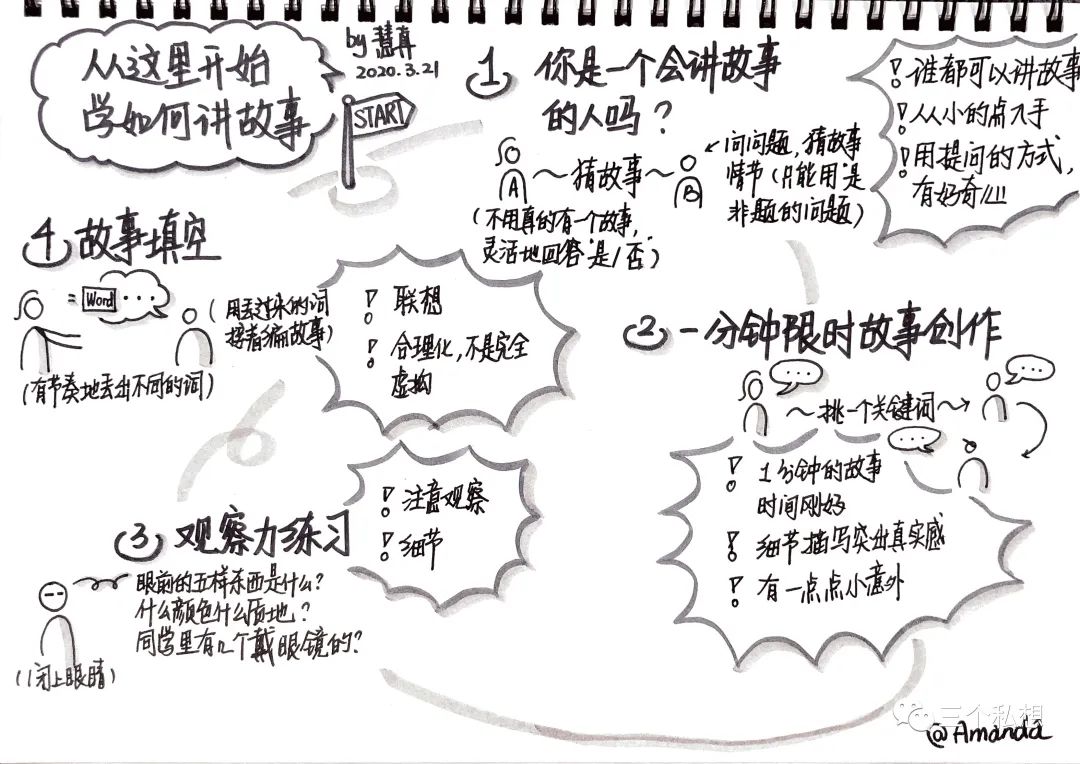 从这里开始
学如何讲故事
by 慧真
2020.3.21
START
1 你是一个会讲故事
的人吗？
A ～猜故事～ B
(不用真的有一个故事,
灵活地回答"是/否")
问问题,猜故事
情节(只能用"是
非题"的问题)
! 谁都可以讲故事
! 从小的点入手
! 用提问的方式,
有好奇心!!!
2 一分钟限时故事创作
～挑一个关键词～
! 1分钟的故事
时间刚好
! 细节描写突出真实感
! 有一点点小意外
3 观察力练习
眼前的五样东西是什么?
什么颜色什么质地?
同学里有几个戴眼镜的?
(闭上眼睛)
! 注意观察
! 细节
4 故事填空
= Word ...
(用丢过来的词
接着编故事)
(有节奏地丢出不同的词)
! 联想
! 合理化,不是完全
虚构
三个私想
@Amanda